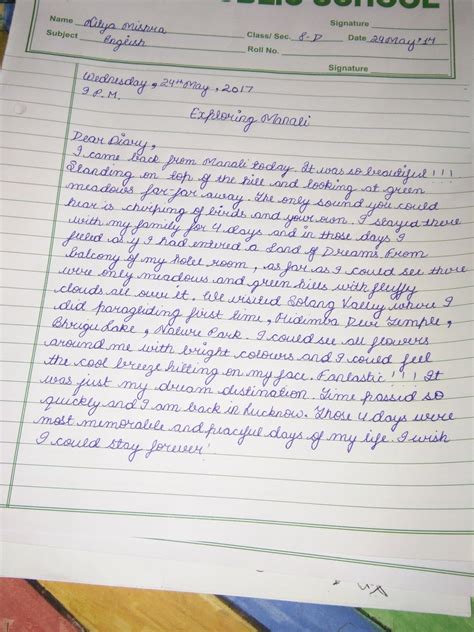 PUBLIC SCHOOL
Signature
Name Divya Mishra Class/ Sec. 8-D Date 24May'17
Subject English Roll No.
Signature
Wednesday, 24th May, 2017
9 P.M.
Exploring Manali
Dear Diary,
I came back from Manali today. It was so beautiful!!!
Standing on top of the hill and looking at green
meadows far-far away. The only sound you could
hear is chirping of birds and your own. I stayed there
with my family for 4 days and in those days I
feeled as if I had entered a Land of Dreams. From
balcony of my hotel room, as far as I could see there
were only meadows and green hills with fluffy
clouds all over it. We visited Solang Valley where I
did paragliding first time, Hidimba Devi Temple,
Bhrigu Lake, Nature Park. I could see all flowers
around me with bright colours and I could feel
the cool breeze hitting on my face. Fantastic!!! It
was just my dream distination. Time passed so
quickly and I am back in Lucknow. Those 4 days were
most memorable and peaciful days of my life. I wish
I could stay forever!